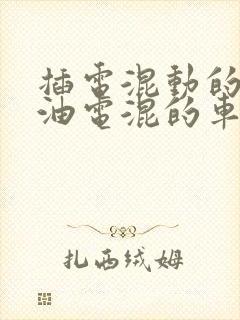 插電混動的
油電混的車
扎西绒姆